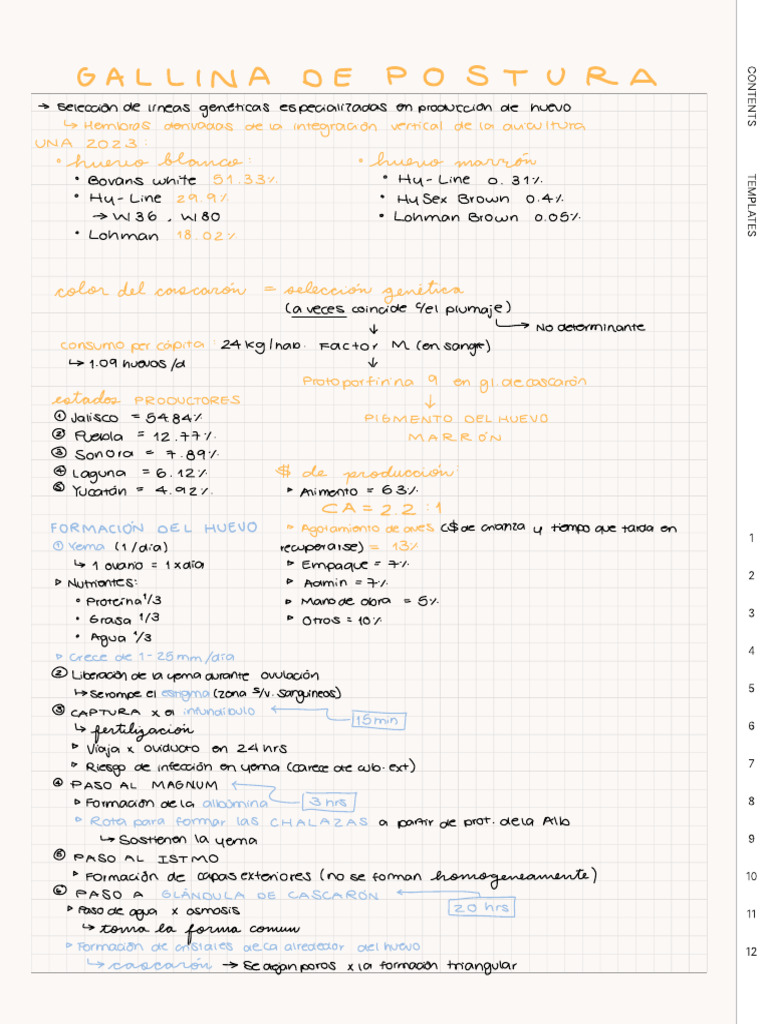 GALLINA DE POSTURA
→ Selección de líneas genéticas especializadas en producción de huevo
↳ Hembras derivadas de la integración vertical de la avicultura
UNA 2023:
• huevo blanco:
• Bovans White 51.33%
• Hy-Line 29.9%
→ W36, W80
• Lohman 18.02%
• huevo marrón
• Hy-Line 0.31%
• HySex Brown 0.4%
• Lohman Brown 0.05%
color del cascarón = selección genética
(a veces coincide c/el plumaje)
→ No determinante
↓
Factor M (en sangre)
↓
Protoporfirina 9 en gl. de cascarón
↓
PIGMENTO DEL HUEVO
MARRÓN
consumo per cápita: 24 kg/hab.
↳ 1.09 huevos/d
estados PRODUCTORES
① Jalisco = 54.84%
② Puebla = 12.77%
③ Sonora = 7.89%
④ Laguna = 6.12%
⑤ Yucatán = 4.92%
$ de producción:
▹ Alimento = 63%
CA = 2.2 : 1
▹ Agotamiento de aves (c$ de crianza y tiempo que tarda en
recuperarse) = 13%
▹ Empaque = 7%
▹ Admin = 7%
▹ Mano de obra = 5%
▹ Otros = 10%
FORMACIÓN DEL HUEVO
① Yema (1/día)
↳ 1 ovario = 1 x día
▹ Nutrientes:
• Proteína 1/3
• Grasa 1/3
• Agua 1/3
▹ Crece de 1-25 mm/día
② Liberación de la yema durante ovulación
↳ Se rompe el estigma (zona s/v. sanguíneos)
③ CAPTURA x el infundíbulo ← 15 min
↳ fertilización
▹ Viaja x oviducto en 24 hrs
▹ Riesgo de infección en yema (carece de cub. ext)
④ PASO AL MAGNUM ← 3 hrs
▹ Formación de la albúmina
▹ Rota para formar las CHALAZAS a partir de prot. de la Alb
↳ Sostienen la yema
⑤ PASO AL ISTMO
▹ Formación de capas exteriores (no se forman homogeneamente)
⑥ PASO A GLÁNDULA DE CASCARÓN ← 20 hrs
▹ Paso de agua x osmosis
↳ toma la forma comun
▹ Formación de cristales de Ca alrededor del huevo
↳ cascarón → Se dejan poros x la formación triangular
CONTENTS
TEMPLATES
1
2
3
4
5
6
7
8
9
10
11
12